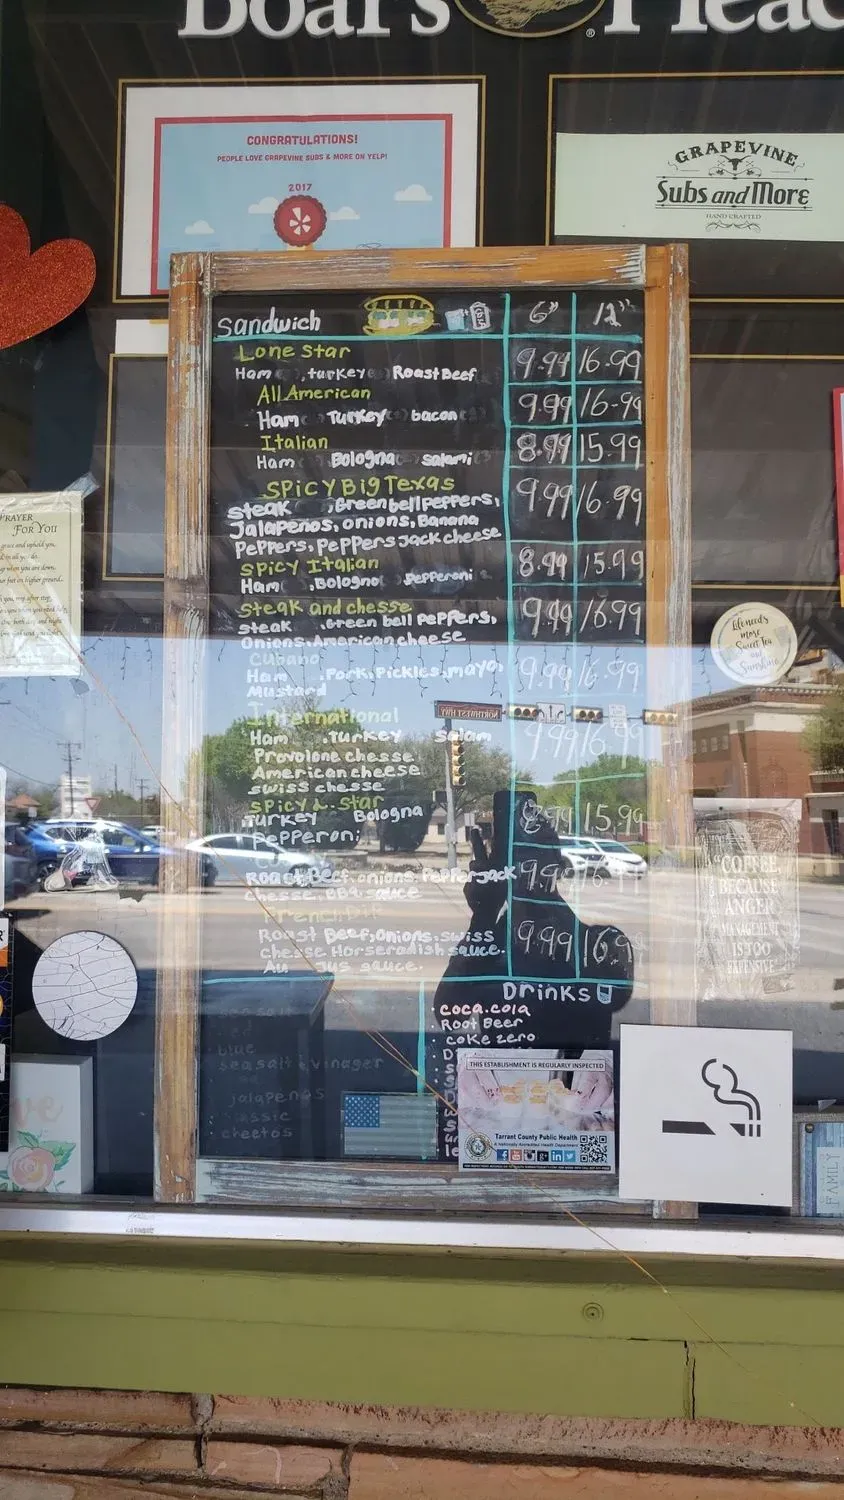 Boar's Head
®
CONGRATULATIONS!
PEOPLE LOVE GRAPEVINE SUBS & MORE ON YELP!
2017
GRAPEVINE
Subs and More
HAND CRAFTED
Sandwich 6" 12"
Lone Star 9.99 16.99
Ham , turkey Roast Beef
All American 9.99 16.99
Ham Turkey bacon
Italian 8.99 15.99
Ham Bologna salami
SPicY Big Texas 9.99 16.99
steak , Green bell peppers,
Jalapenos, onions, Banana
PePPers, PePPers Jack cheese
SPicy Italian 8.99 15.99
Ham , Bologno , Pepperoni
steak and chesse 9.99 16.99
steak . Green bell peppers,
Onions. American cheese
Cubano 9.99 16.99
Ham . Pork, Pickles, mayo,
Mustard
International 9.99 16.99
Ham . Turkey salam
Provolone chesse
American cheese
swiss chesse
SPicy L. Star 8.99 15.99
Turkey Bologna
Pepperoni
Roast Beef, onions, Pepper jack 9.99 16.
chesse, BBQ sauce
French Dip
Roast Beef, Onions, swiss 9.99 16.9
chesse Horseradish sauce.
Au Jus sauce.
Drinks
coca.cola
Root Beer
coke zero
blue
sea salt & vinager
jalapenos
cheetos
PRAYER
FOR YOU
Lifeneeds
more
Sweet Tea
and
Sunshine
NORTHWEST HWY
COFFEE,
BECAUSE
ANGER
MANAGEMENT
IS TOO
EXPENSIVE
THIS ESTABLISHMENT IS REGULARLY INSPECTED
Tarrant County Public Health
A Nationally Accredited Health Department
FAMILY